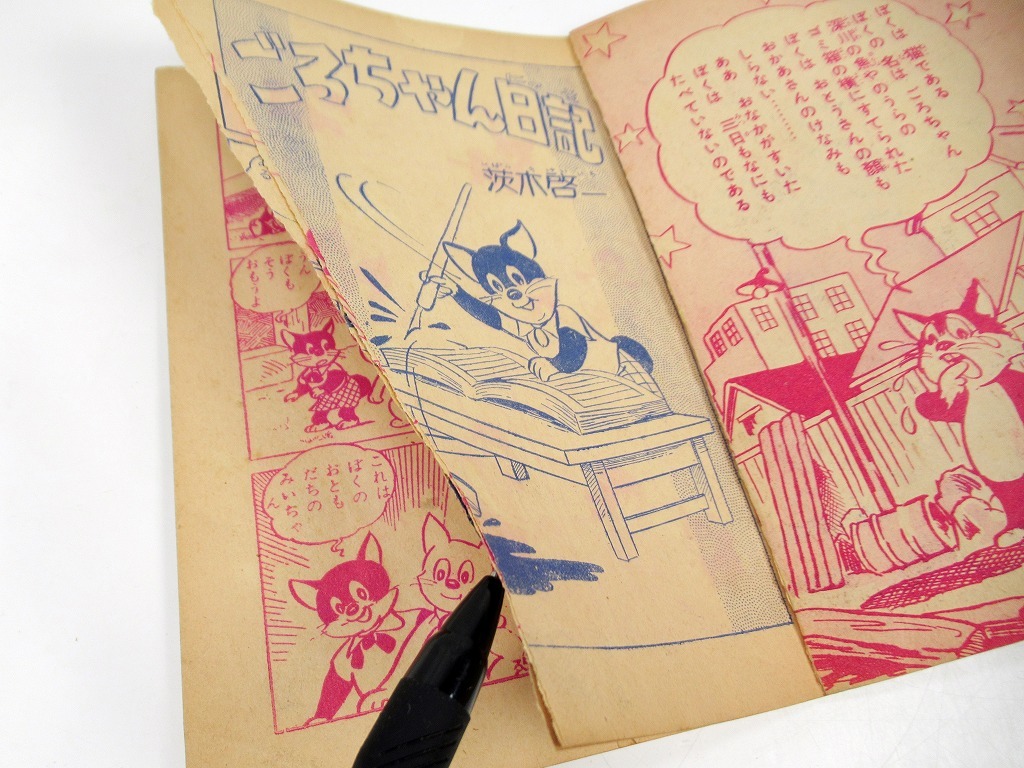 ごろちゃん日記
茨木啓一
ぼくは 猫である
ぼくの名は ごろちゃん
深川の魚やのうらの
ゴミ箱の横にすてられた
ぼくは おとうさんの顔も
おかあさんのけなみも
しらない………
ああ おなかがすいた
ぼくは 三日もなにも
たべていないのである
ぼくも
そう
おもうよ
これは
ぼくの
おとも
だちの
みいちゃ
ん